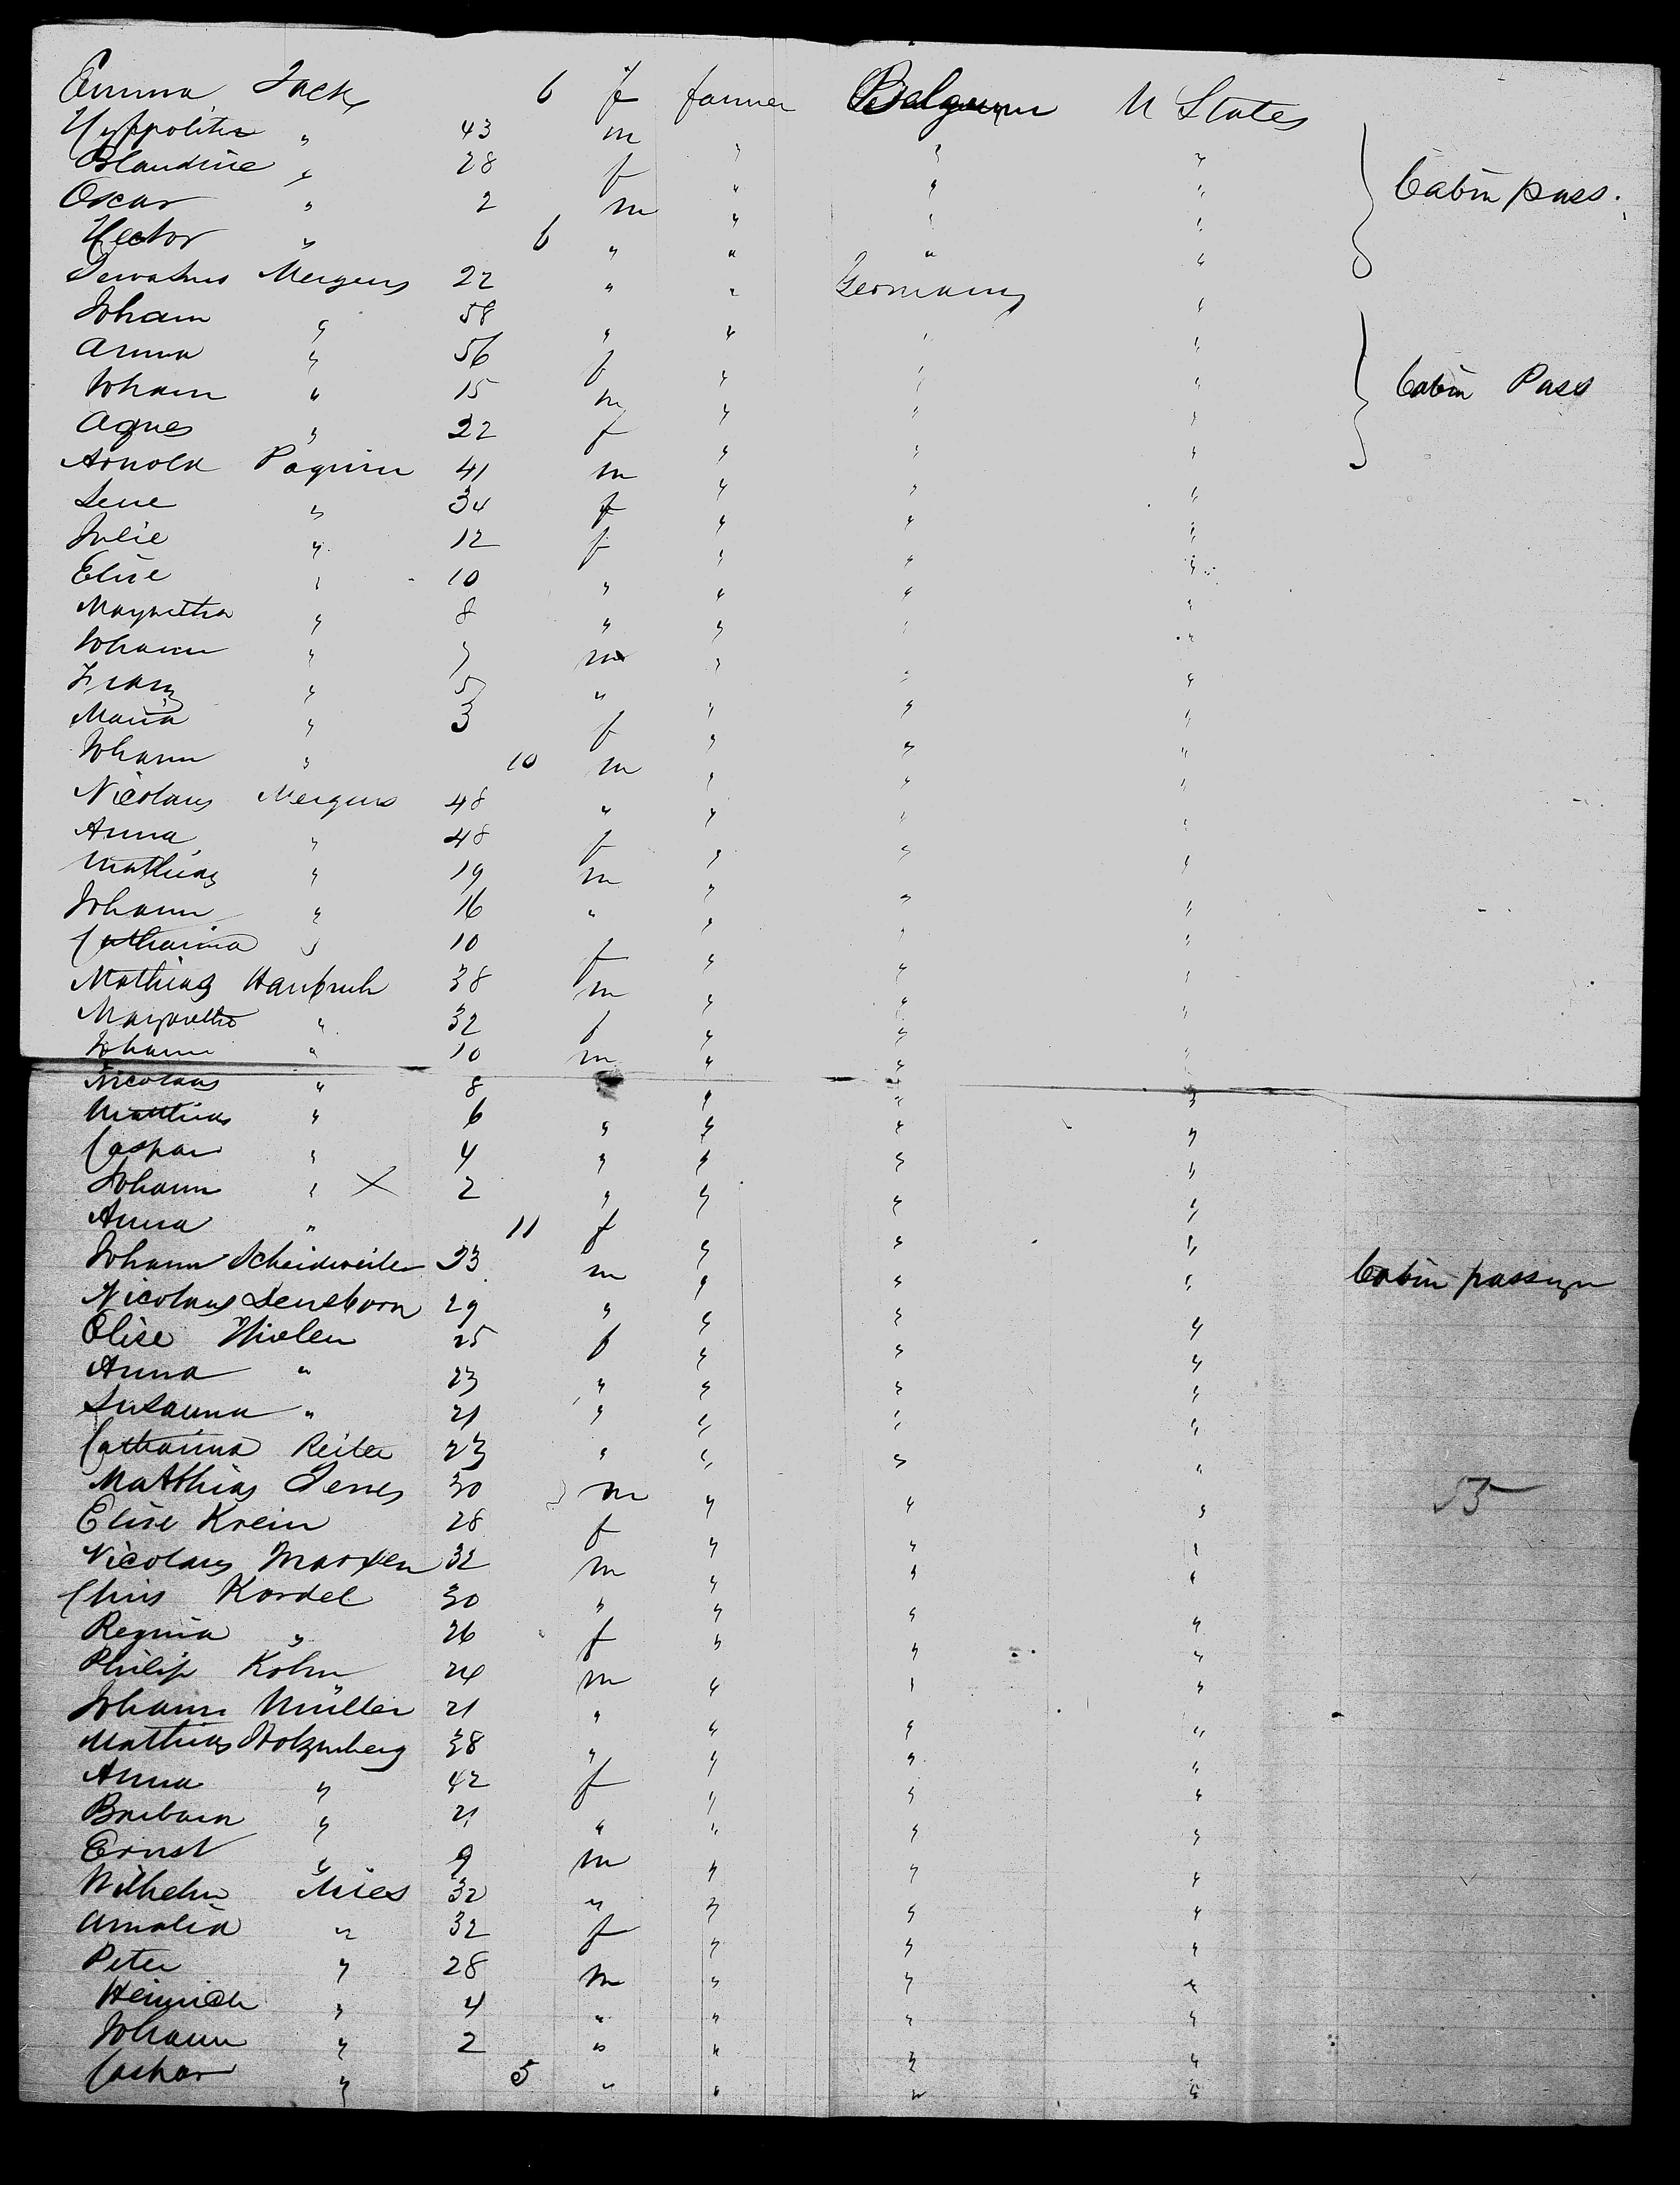 Emma Jacks 6 f farmer Belgium U States
Hyppolite " 43 m " " "
Blandine " 28 f " " " Cabin pass.
Oscar " 2 m " " "
Hector " 6 " " " "
Servatius Mergens 22 " " Germany "
Johann " 58 " " " "
Anna " 56 f " " "
Johann " 15 m " " " Cabin Pass
Agnes " 22 f " " "
Arnold Paquin 41 m " " "
Lene " 34 f " " "
Julie " 12 f " " "
Elise " 10 " " " "
Margretha " 8 " " " "
Johann " 7 m " " "
Franz " 5 " " " "
Maria " 3 f " " "
Johann " 10 m " " "
Nicolaus Mergens 48 " " " "
Anna " 48 f " " "
Mathias " 19 m " " "
Johann " 16 " " " "
Catharina " 10 f " " "
Mathias 38 m " " "
Margaretha " 32 f " " "
Johann " 10 m " " "
Nicolaus " 8 " " "
Matthias " 6 " " " "
Caspar " 4 " " " "
Johann " X 2 " " " "
Anna " 11 f " " "
Johann Scheidweiler 23 m " " " Cabin
Nicolaus Densborn 29 " " " "
Elise Thielen 25 f " " "
Anna " 23 " " " "
Susanna " 21 " " " "
Catharina Reiter 23 " " " "
Matthias 30 m " " " 53
Elise Krein 28 f " " "
Nicolaus Marxen 32 m " " "
Chris Kordel 30 " " " "
Regina " 26 f " " "
Philip Kohn 24 m " " "
Johann Müller 21 " " " "
Mathias Stolzenberg 38 " " " "
Anna " 42 f " " "
Barbara " 21 " " " "
Ernst " 9 m " " "
Wilhelm Thies 32 " " " "
Amalia " 32 f " " "
Peter " 28 m " " "
Heinrich " 4 " " " "
Johann " 2 " " " "
Caspar " 5 " " " "